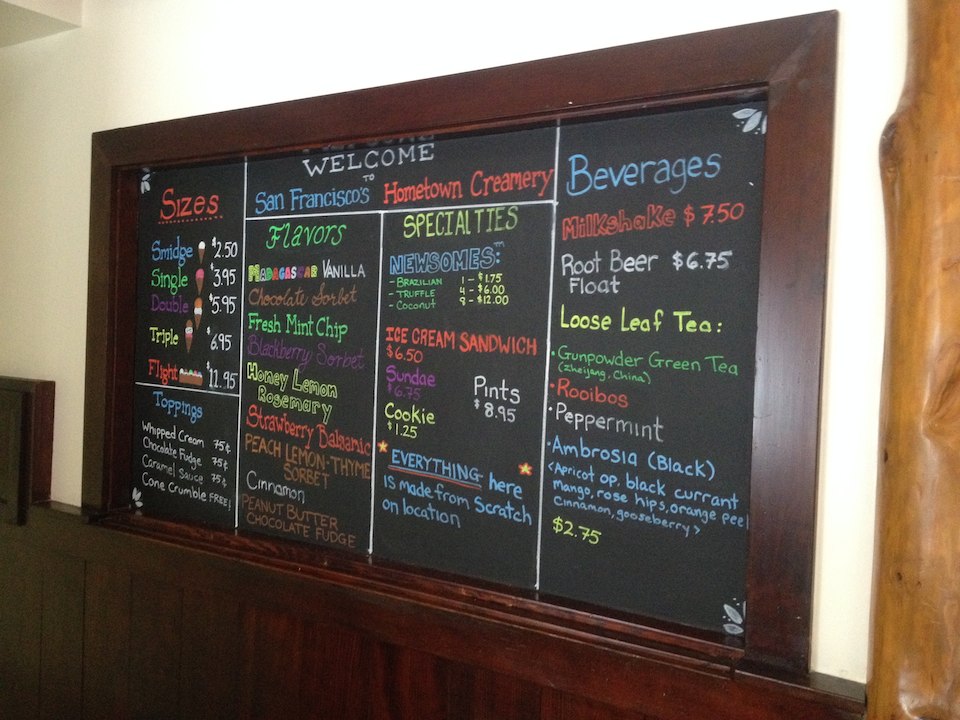 WELCOME
TO
San Francisco's Hometown Creamery
Sizes
Smidge $2.50
Single $3.95
Double $5.95
Triple $6.95
Flight $11.95
Toppings
Whipped Cream 75¢
Chocolate Fudge 75¢
Caramel Sauce 75¢
Cone Crumble FREE!
Flavors
MADAGASCAR VANILLA
Chocolate Sorbet
Fresh Mint Chip
Blackberry Sorbet
Honey Lemon
Rosemary
Strawberry Balsamic
PEACH LEMON-THYME
SORBET
Cinnamon
PEANUT BUTTER
CHOCOLATE FUDGE
SPECIALTIES
NEWSOMES™:
- BRAZILIAN 1 - $1.75
- TRUFFLE 4 - $6.00
- COCONUT 9 - $12.00
ICE CREAM SANDWICH
$6.50
Sundae
$6.75
Pints
$8.95
Cookie
$1.25
EVERYTHING here
is made from Scratch
on location
Beverages
Milkshake $7.50
Root Beer $6.75
Float
Loose Leaf Tea:
• Gunpowder Green Tea
(Zheijang, China)
• Rooibos
• Peppermint
• Ambrosia (Black)
<Apricot op, black currant
mango, rose hips, orange peel
Cinnamon, gooseberry>
$2.75